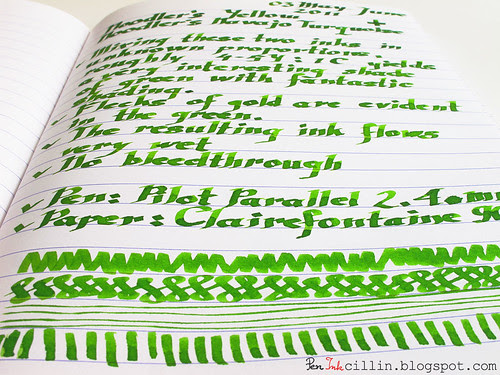 03 May June
2011 +
Noodler's Yellow
Noodler's Navajo Turquoise
✓ Mixing these two inks in
unknown proportions.
roughly 4.5Y : 1C yields
a very interesting shade
of green with fantastic
shading.
✓ Flecks of gold are evident
in the green.
✓ The resulting ink flows
very wet
✓ No bleedthrough
✓ Pen: Pilot Parallel 2.4mm
✓ Paper: Clairefontaine
Pen Inkcillin.blogspot.com